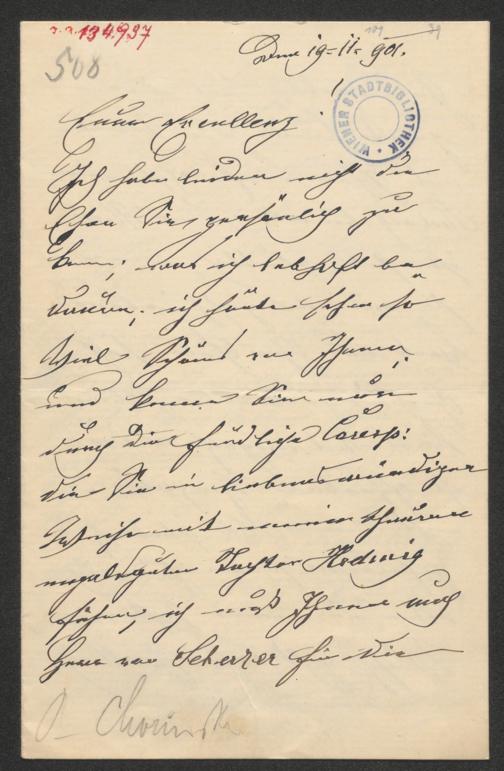 134.937
508
19-II-901.
WIENER STADTBIBLIOTHEK
Euer Excellenz
Ich habe leider nicht die
Ehre Sie persönlich zu
kennen, was ich lebhaft be-
dauere; ich hörte schon so
viel Schönes von Ihnen,
und kenne Sie nur
durch die Corresp:
die Sie in liebenswürdiger
Weise mit meiner theuren
Tochter Hedwig
führen, ich muß Ihnen und
Herrn von Scherzer für die
Chorinsky